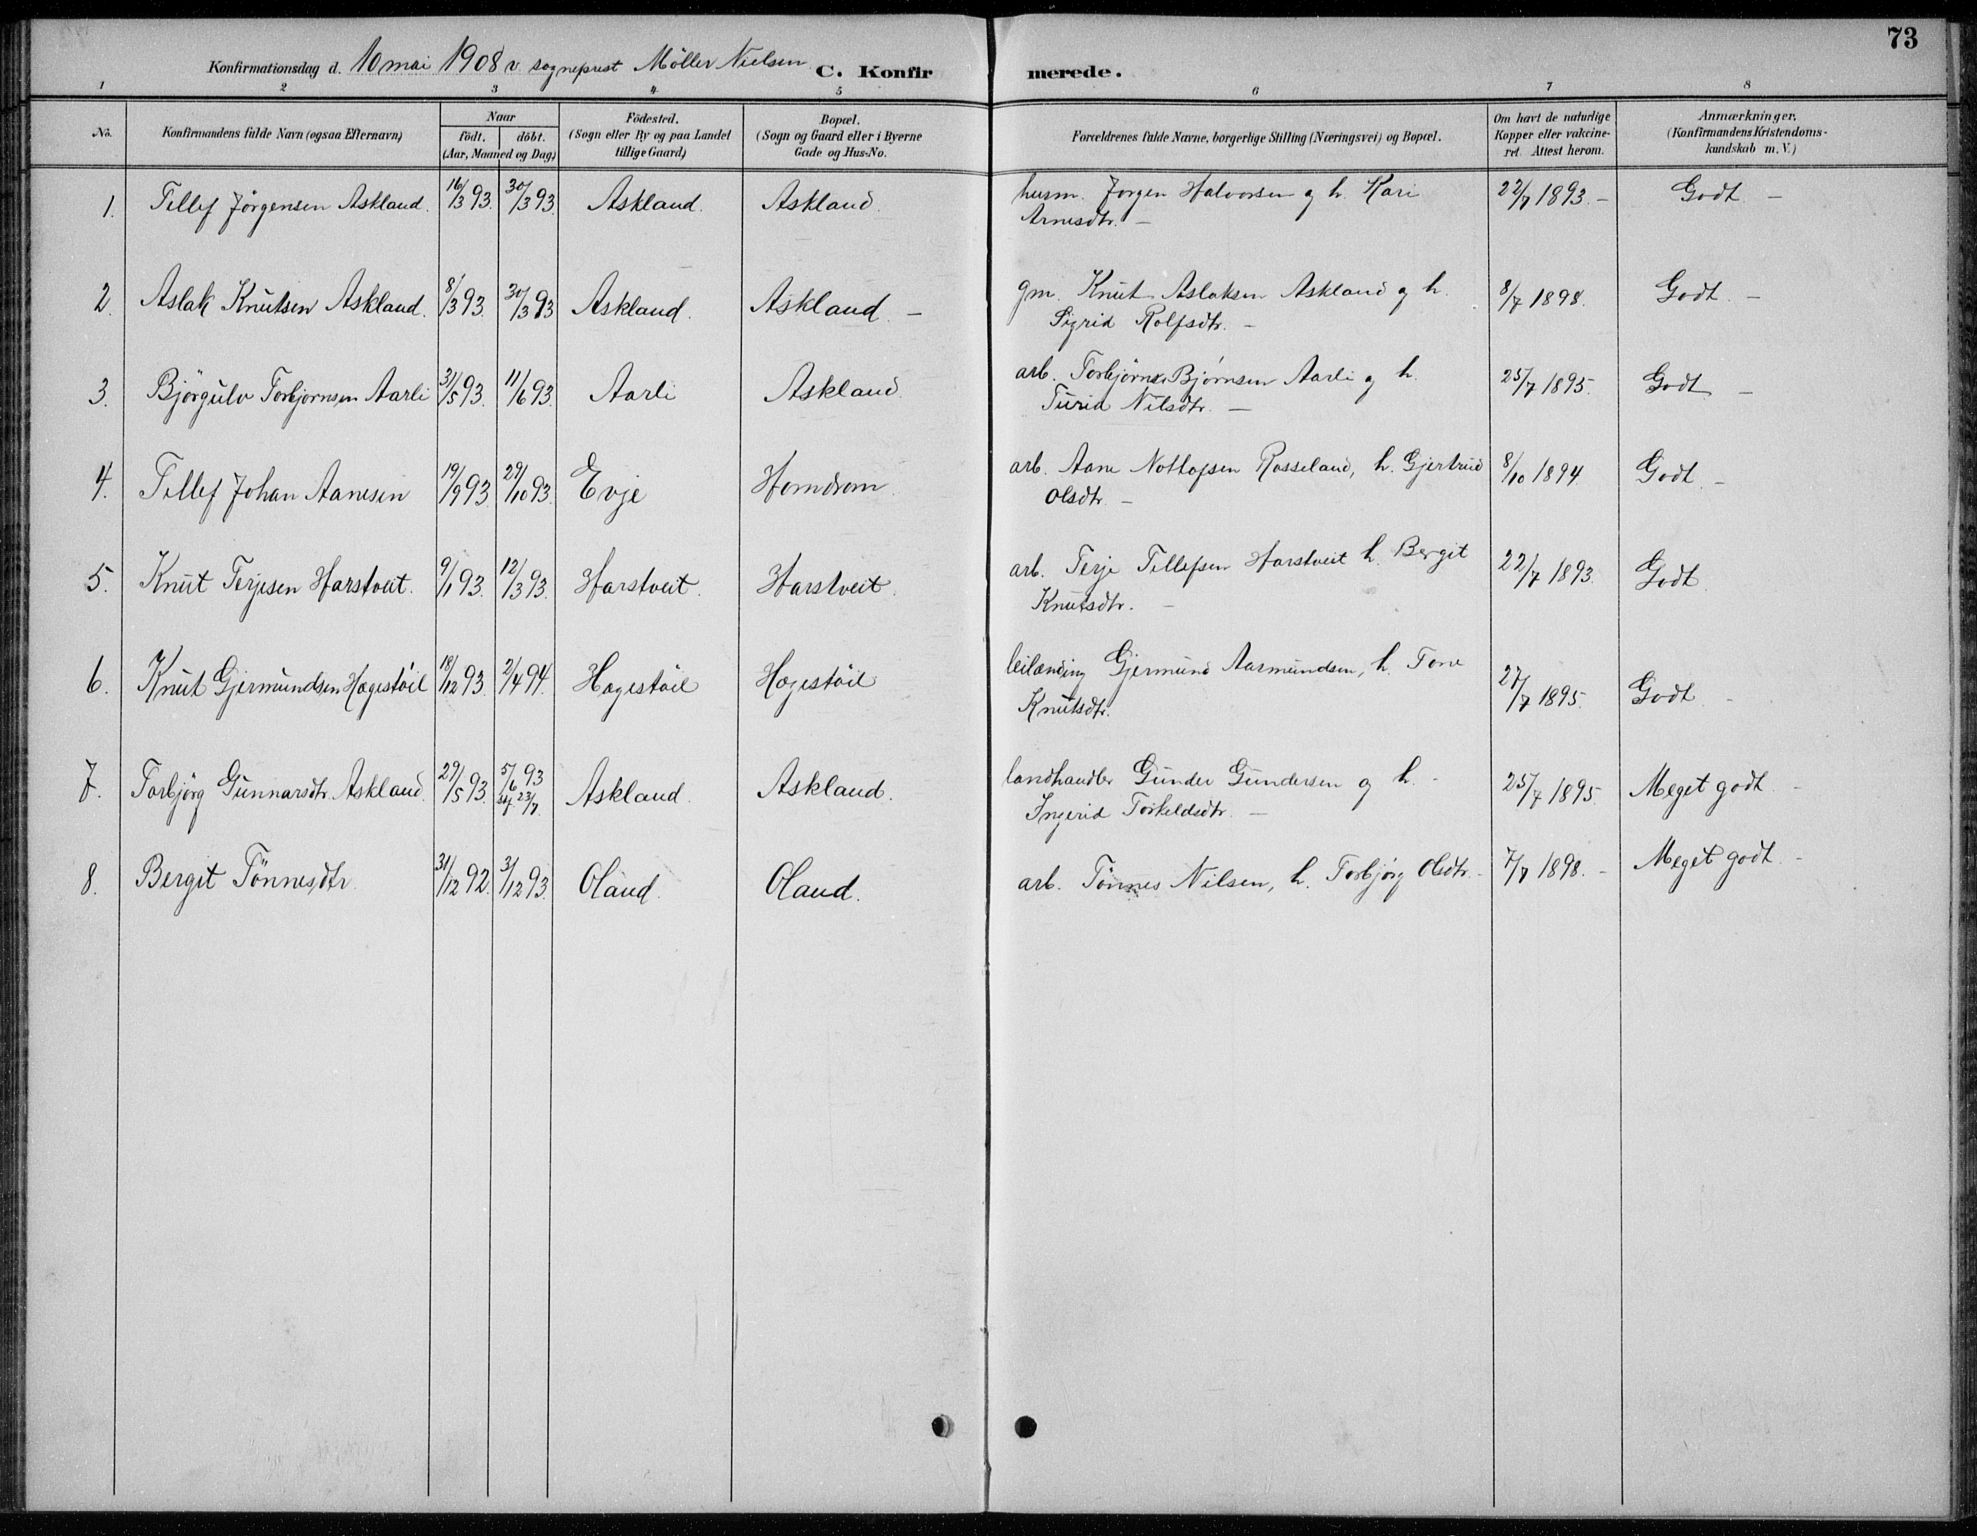 73
Konfirmationsdag d. 10 mai 1908 v sogneprest Möller Nielsen C. Konfirmerede.
1 2 3 4 5 6 7 8
No. Konfirmandens fulde Navn (ogsaa Efternavn) Naar födt. döbt. (Aar, Maaned og Dag) Födested. (Sogn eller By og paa Landet tillige Gaard) Bopæl. (Sogn og Gaard eller i Byerne Gade og Hus-No. Forældrenes fulde Navne, borgerlige Stilling (Næringsvei) og Bopæl. Om havt de naturlige Kopper eller vakcineret. Attest herom. Anmærkninger. (Konfirmandens Kristendomskundskab m. V.)
1. Tellef Jörgensen Askland. 16/3 93. 30/3 93. Askland. Askland. husm. Jörgen Halvorsen og h. Kari
Arnesdtr. — 22/7 1893. — Godt —
2. Aslak Knutsen Askland. 8/3 93. 30/3 93 Askland. Askland — gm. Knut Aslaksen Askland og h.
Sigrid Rolfsdtr. — 8/7 1898. Godt —
3. Bjørgulv Torbjørnsen Aarli 31/5 93. 11/6 93. Aarli Askland arb. Torbjørn Bjørnsen Aarli og h.
Turid Nilsdtr. — 25/7 1895. Godt —
4. Tellef Johan Aanesen 19/9 93 29/10 93. Evje Horndrom. arb. Aane Nottofsen Rosseland, h. Gjertrud
Olsdtr. — 8/10 1894 Godt —
5. Knut Terjesen Harstveit. 9/1 93. 12/3 93. Harstveit. Harstveit. arb. Terje Tellefsen Harstveit h. Bergit
Knutsdtr. — 22/7 1893. Godt.
6. Knut Gjermundsen Hægestöil 18/12 93. 2/4 94. Hægestöil Hægestöil leilænding Gjermund Aasmundsen, h. Tone
Knutsdtr. 27/7 1895. Godt —
7. Torbjörg Gunnarsdtr. Askland. 29/5 93. 5/6 93
23/7 Askland. Askland. landhandler Gunder Gundersen og h. -
Ingerid Torkeldsdtr. — 25/7 1895. Meget godt —
8. Bergit Tönnesdtr 31/12 92. 3/12 93. Oland. Oland. arb. Tönnes Nilsen, h. Torbjörg Olsdtr. - 7/7 1898. — Meget godt —